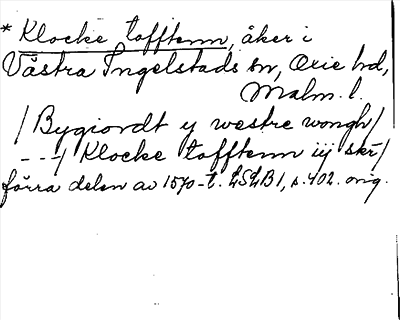 * Klocke tofftenn, åker i
Västra Ingelstads sn, Oxie hd,
Malm. l.
/ Bygiordt y westre wongh/
- - -/ Klocke tofftenn iij skr/
förra delen av 1570-t. LSLB 1, s. 402. orig.